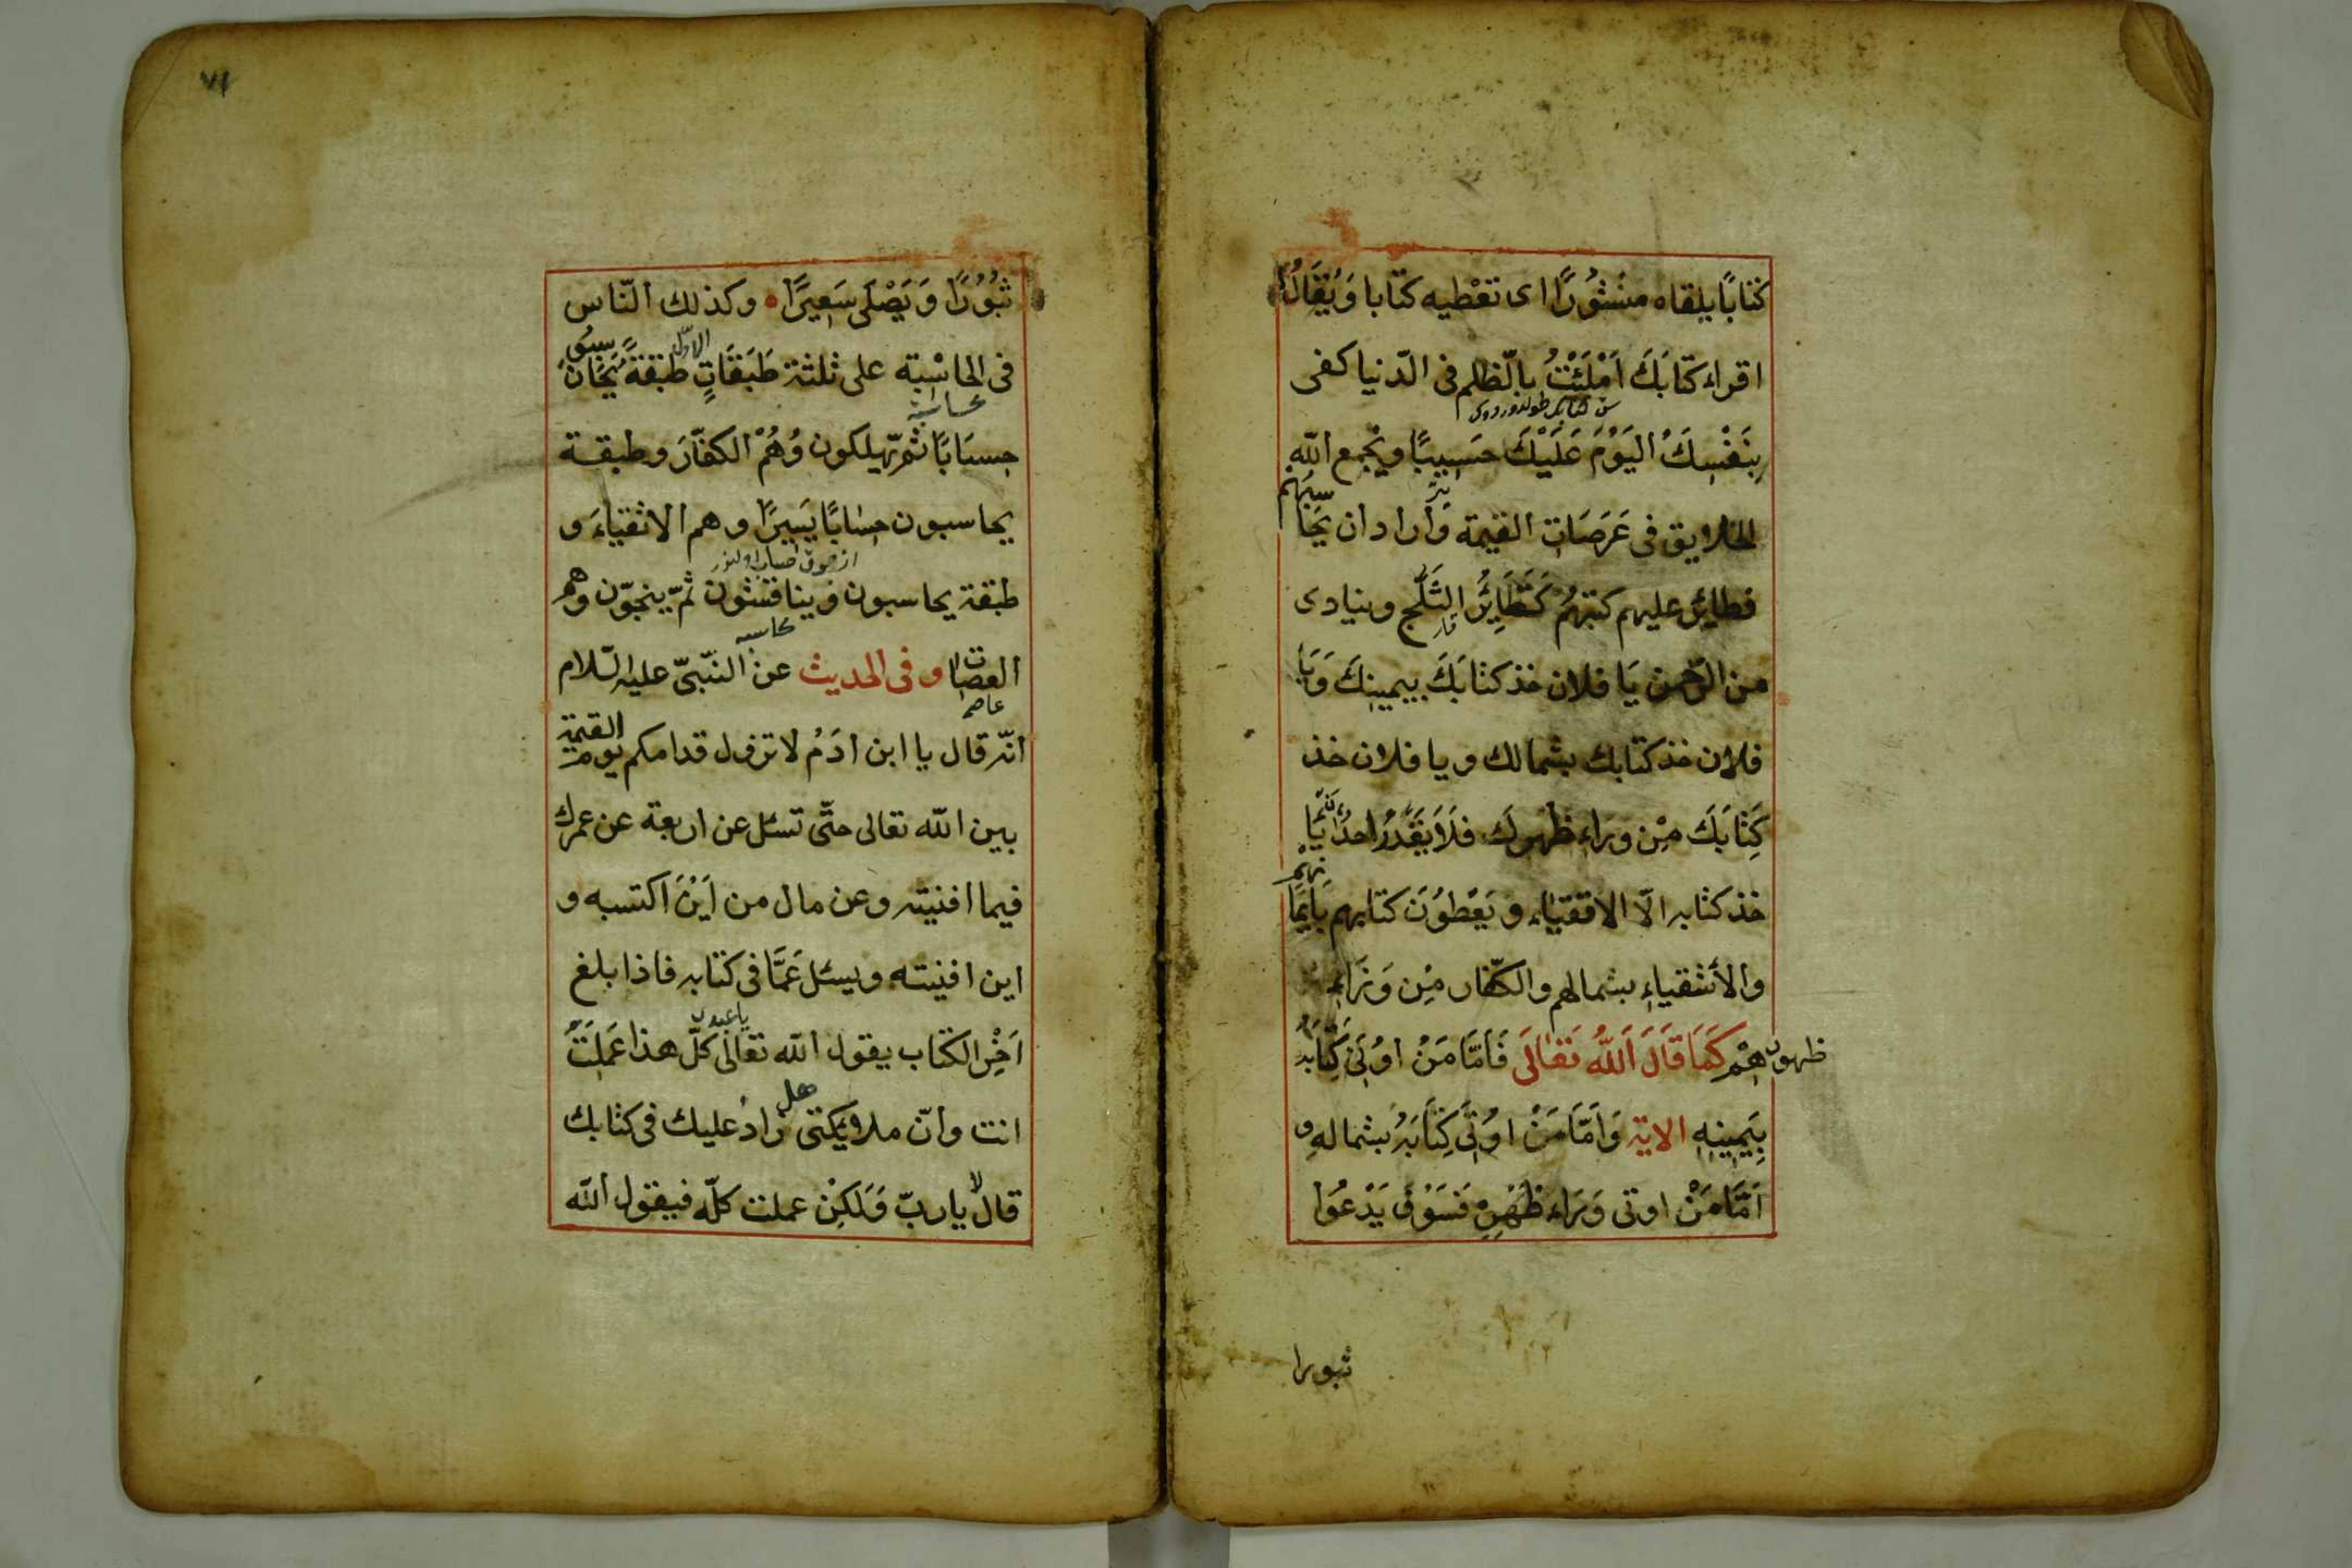 كتابًا يلقاه منشُورًا اى نعْطيه كتابا وَيُقَالُ
اقراء كتَابَكَ اَمْلَئْتُ بالّظلم فى الدّنيا كفى
بِنَفْسِكَ اليَوْمَ عَلَيْكَ حَسِيبًا ويجْمع اللّه
الخلايق فى عَرَصَاتِ القيٰمة وَاراد ان يحَاسبَهم
فطايرُ عليهم كتبَهُمْ كَتَطَايُرِ الثَلْجِ وينادى
قار
من الرّحمن يَا فلان خذ كتابَكَ بيمينِكَ وَيَا
فلان خذ كتابك بشمالك ويا فلان خذ
كِتَابَكَ مِنْ ورَاءِ ظَهْرِكَ فلَا يَقْدَرُ احدٌ
خذ كتابه الّا الاتقيَاء ويَعْطوُنَ كتابهم بايمَانِهمْ
والأشقياءِ بشمالهم والكفّار مِن وَرَاءِ
ظهورهِمْ كَمَا قَالَ اَللّهُ تَعَالَى فَاَمَّا مَنْ اوُتِىَ كِتَابَهُ
بِيَمِينِهِ الاية وَاَمَّا مَنْ اوُتِىَ كِتَابَهُ بشمالهِ و
اَمَّا مَنْ اوتى وَرَاءَ ظَهْرِهِ فَسَوْفَ يَدْعُوا
ثبورا
٧١
ثبُوُرًا وَيَصْلَى سَعِيرًا وكذلك النّاس
الاوّل
فى المحاسْبَة على ثلثة طَبَقَاتٍ طبقةً يُحَاسبُونَ
محاسبة
حِسَابًا ثمّ يهلكون وُهُمْ الكفّارَ وطبقة
يحاسبون حِسَابًا يَسِيرًا وهم الاتقيَاءَ و
طبقة يحاسبون وَيناقشون ثمّ ينجوّن وهم
العصات وفى الحديث عن النّبىّ عليه السّلام
انّه قال يا ابن ادَمُ لا تزول قدامكم يوم القيمة
بين اللّه تعالى حتّى تسئل عن اربعة عن عمرك
فيما افنيته وعن مال من اَيْنَ اكتسبه و
اين افنيته ويسئل عَمَّا فى كتابه فاذا بلغ
يا عبدى
اَخْرِ الكتاب يقول اللّه تعالى كلّ هذا عَمِلَتْ
انت وانّ ملايكتى هل زاد عليك فى كتابك
قال لا ياربّ وَلَكِنْ عملت كلّه فيقول اللّه